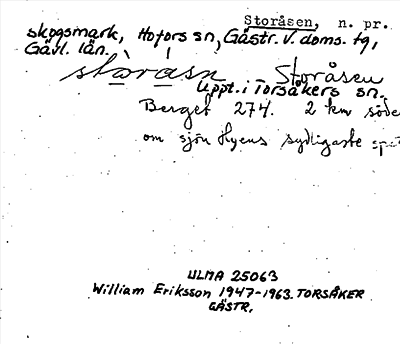 Storåsen, n. pr.
skogsmark, Hofors sn, Gästr. V. doms. tg,
Gävl. län.
stòråsn Storåsen
Uppt. i Torsåkers sn.
Berget 274. 2 km söde
om sjön Hyens sydligaste spet
ULMA 25063
William Eriksson 1947-1963. TORSÅKER
GÄSTR.